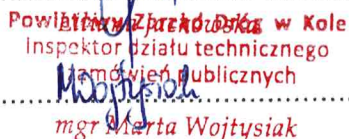 Powiatowy Zarząd Dróg w Kole
Inspektor działu technicznego
i zamówień publicznych
Wojtysiak
mgr Marta Wojtysiak